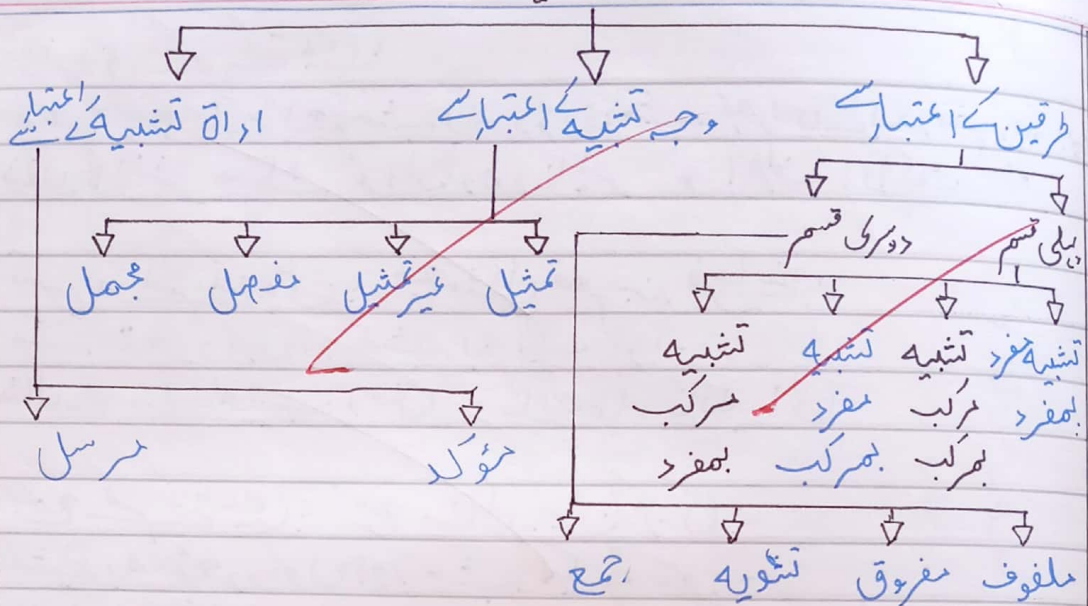 طرفین کے اعتبار سے وجہ تشبیہ کے اعتبار سے اداۃ تشبیہ کے اعتبار سے
پہلی قسم دوسری قسم
تمثیل غیر تمثیل مفصل مجمل
تشبیہ مفرد بمفرد
تشبیہ مرکب بمرکب
تشبیہ مفرد بمرکب
تشبیہ مرکب بمفرد
مؤکد مرسل
ملفوف مفروق تسویہ جمع